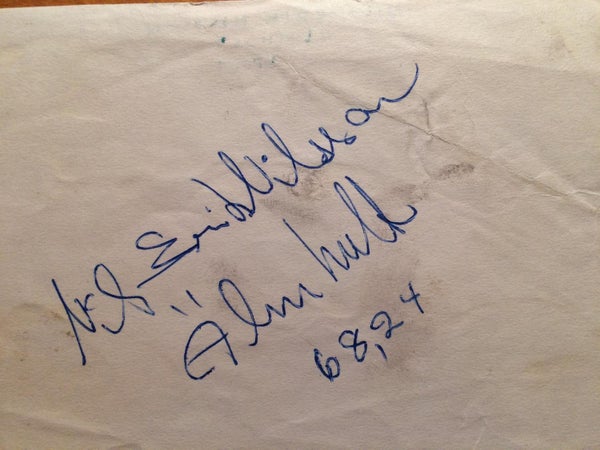 Nils Erik Nilsson
Älmhult
68,24